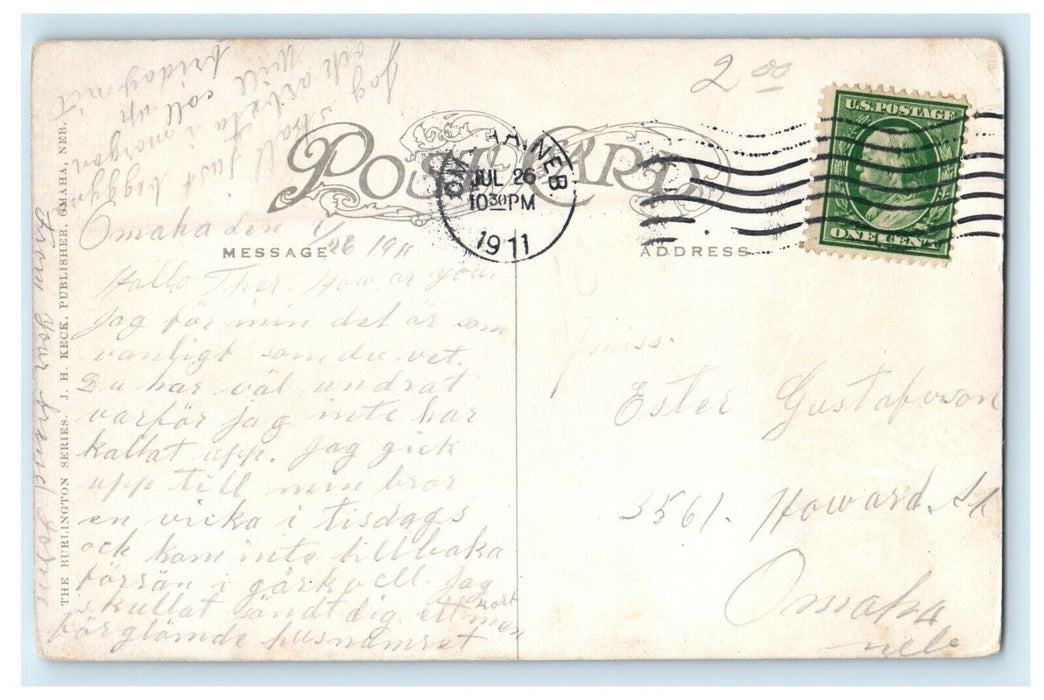 2 00
POST CARD
U.S. POSTAGE
ONE CENT
NEB
JUL 26
10 30 PM
1911
MESSAGE
ADDRESS
Omaha den
26 1911
Hallo Ther. How ar you.
Jag för min del är som
vanligt som du vet.
Du har väl undrat
varför jag inte har
kallat upp. Jag gick
upp till min bror
en vicka i tisdags
ock kom inte tillbaka
förrän i går kvell. Jag
skullat sändt dig ett kort men
förglömde husnumret
Jag
ock arbeta i morgon
will call up
friday nit
From your friend
THE BURLINGTON SERIES. J. H. KECK, PUBLISHER, OMAHA, NEB.
miss.
Ester Gustafvson
3561. Howard. St
Omaha
neb